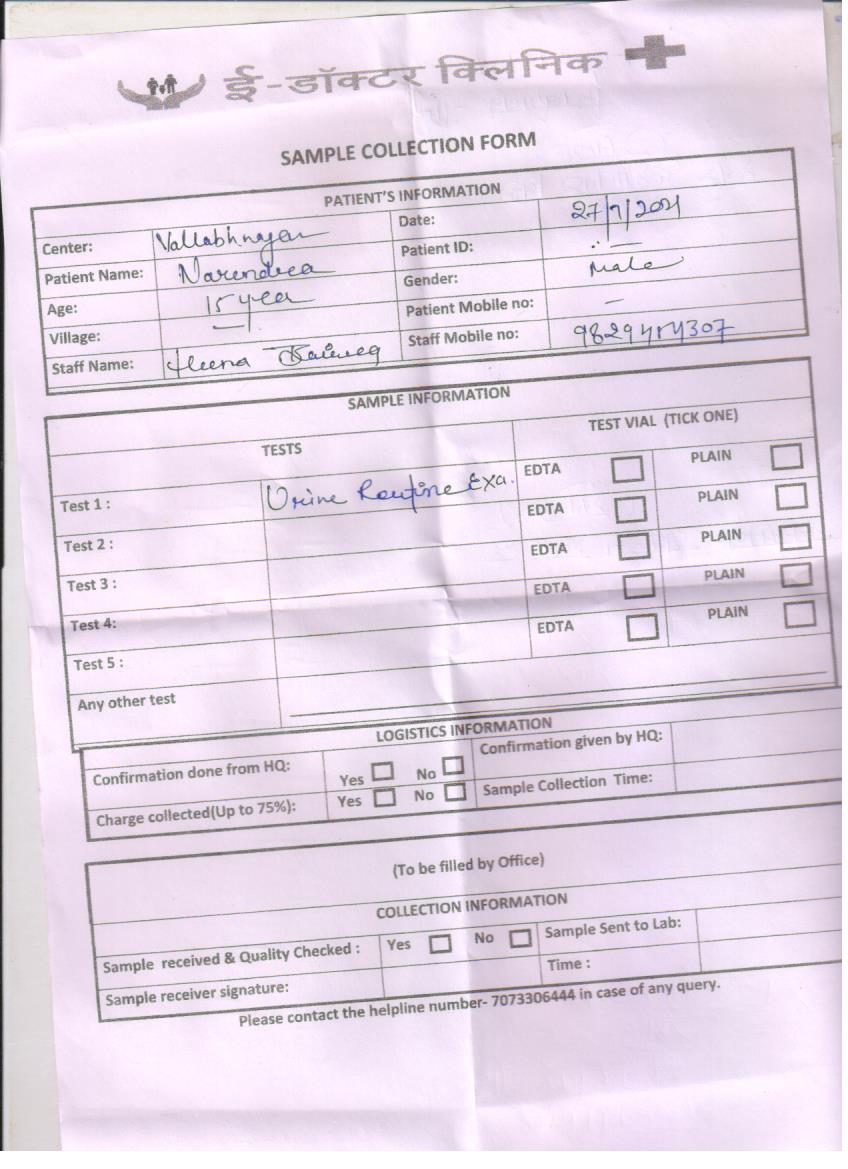 ई-डॉक्टर क्लिनिक
SAMPLE COLLECTION FORM
PATIENT'S INFORMATION
Center: Vallabhnagar Date: 27/7/2021
Patient Name: Narendra Patient ID: —
Age: 15 year Gender: Male
Village: — Patient Mobile no: —
Staff Name: Heena Staff Mobile no:
SAMPLE INFORMATION
TESTS TEST VIAL (TICK ONE)
Test 1 : Urine Routine Exa. EDTA PLAIN
Test 2 : EDTA PLAIN
Test 3 : EDTA PLAIN
Test 4: EDTA PLAIN
Test 5 : EDTA PLAIN
Any other test
LOGISTICS INFORMATION
Confirmation done from HQ: Yes No Confirmation given by HQ:
Charge collected(Up to 75%): Yes No Sample Collection Time:
(To be filled by Office)
COLLECTION INFORMATION
Sample received & Quality Checked : Yes No Sample Sent to Lab:
Sample receiver signature: Time :
Please contact the helpline number- 7073306444 in case of any query.